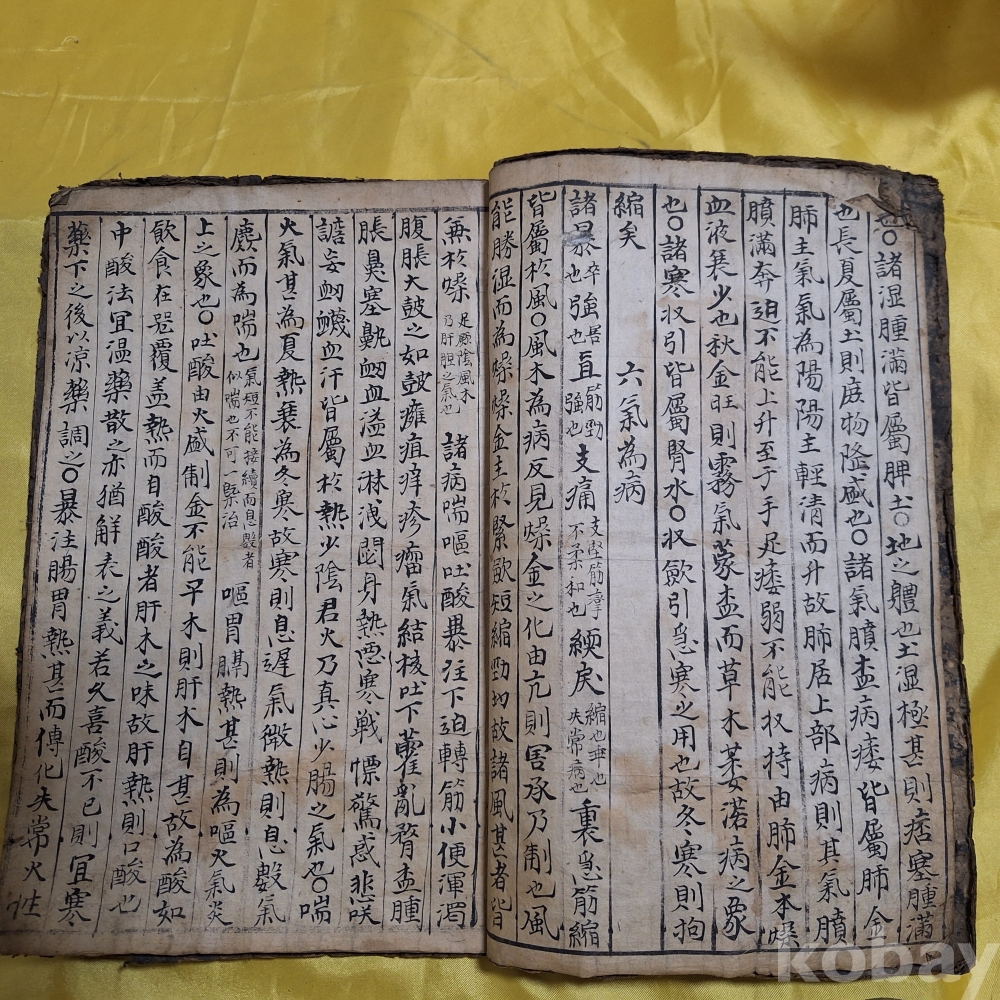 也○諸湿腫滿皆屬脾土○地之體也土湿極甚則痞塞腫滿
也長夏屬土則庶物隆盛也○諸氣膹盂病痿皆屬肺金
肺主氣氣為陽陽主輕清而升故肺居上部病則其氣膹
膹滿奔迫不能上升至于手足痿弱不能收持由肺金本燥
血液衰少也秋金旺則霧氣蒙盂而草木萎落病之象
也○諸寒收引皆屬腎水○收歛引急寒之用也故冬寒則拘
縮矣
六氣為病
諸暴卒也強吾強也直筋勁也支痛支孿筋攣不柔和也緛戾縮也乖也失常病也裏急筋縮
皆屬於風○風木為病反見燥金之化由亢則害承乃制也風
能勝湿而為燥燥金主於緊歛短縮勁切故諸風甚者皆
兼於燥足厥陰風木乃肝胆之氣也 諸病喘嘔吐酸暴注下迫轉筋小便渾濁
腹脹大皷之如皷癰疽痒疹瘤氣結核吐下藿亂瞀盂腫
脹鼻塞鼽衂血溢血淋洩閟身熱惡寒戰慄驚惑悲咲
譫妄衂衊血汗皆屬於熱少陰君火乃真心少腸之氣也○喘
火氣甚為夏熱衰為冬寒故寒則息遲氣微熱則息數氣
麁而為喘也氣短不能接續而息數者似喘也不可一槩治 嘔胃膈熱甚則為嘔火氣炎
上之象也○吐酸由火盛制金不能平木則肝木自甚故為酸如
飲食在器覆盖熱而自酸酸者肝木之味故肝熱則口酸也
中酸法宜温藥散之亦猶解表之義若久喜酸不已則宜寒
藥下之後以凉藥調之○暴注腸胃熱甚而傳化失常火性
kobay